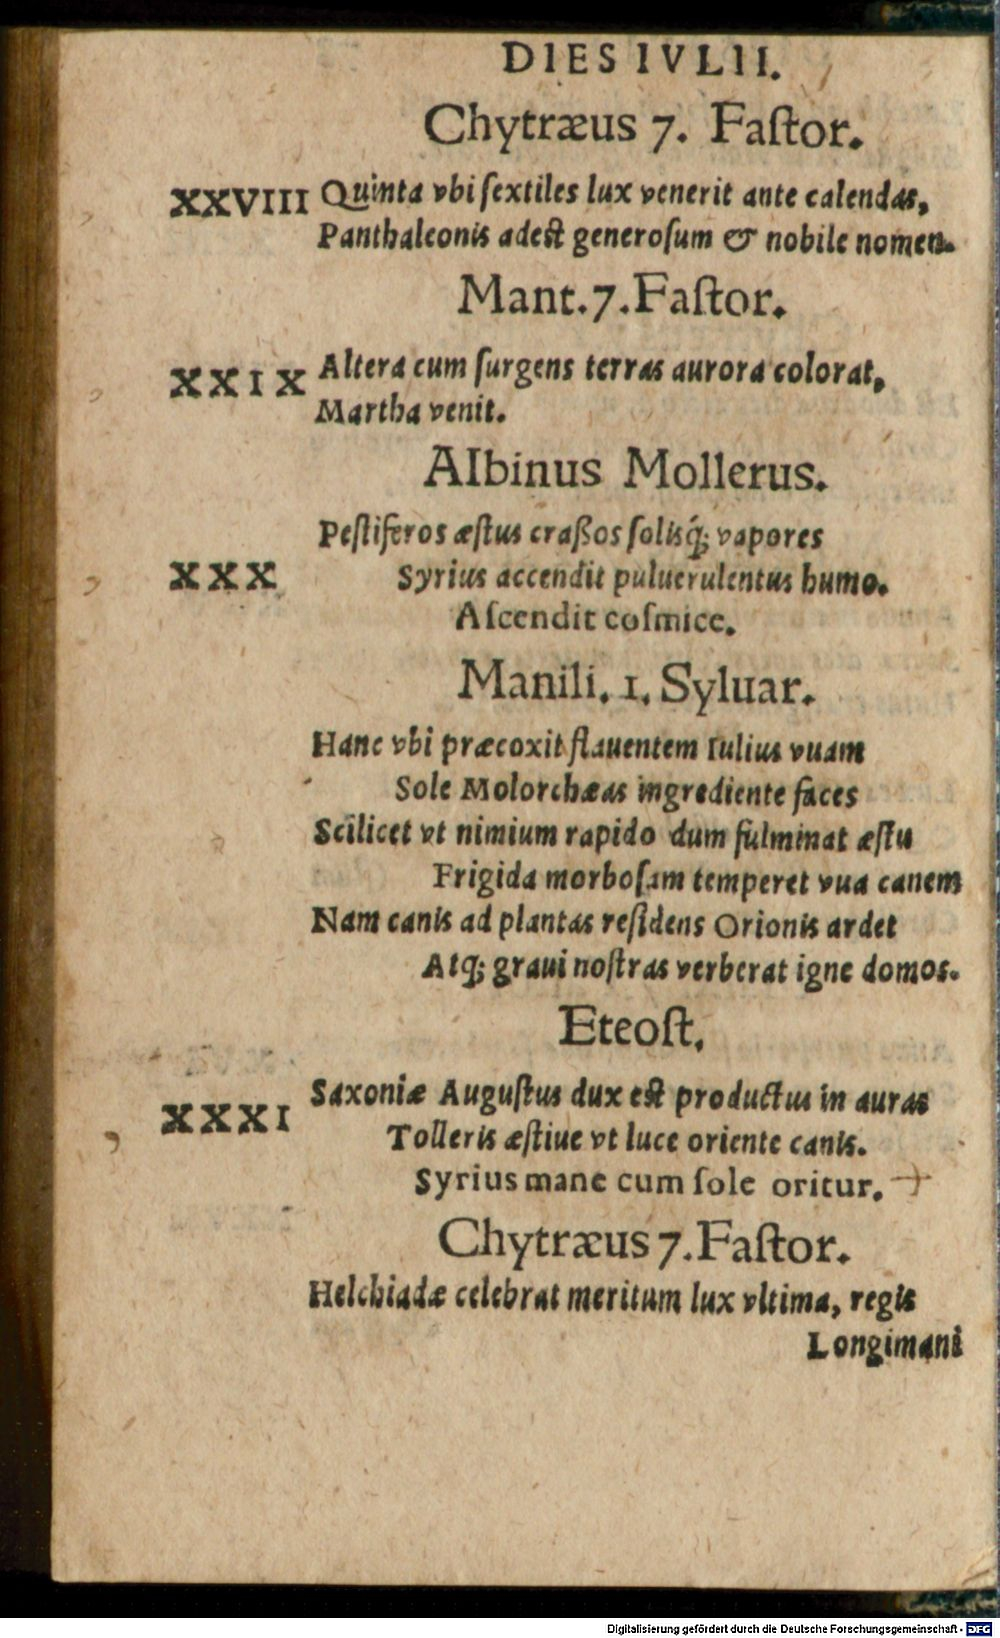 DIES IVLII.
Chytræus 7. Faſtor.
XXVIII Quinta vbi ſextiles lux venerit ante calendas,
Panthaleonis adeſt generoſum & nobile nomen.
Mant. 7. Faſtor.
XXIX Altera cum ſurgens terras aurora colorat,
Martha venit.
Albinus Mollerus.
Peſtiferos æſtus craßos ſolisq́; vapores
XXX Syrius accendit puluerulentus humo.
Aſcendit coſmice.
Manili. 1. Syluar.
Hanc vbi præcoxit flauentem Iulius vuam
Sole Molorchæas ingrediente faces
Scilicet vt nimium rapido dum fulminat æſtu
Frigida morboſam temperet vua canem
Nam canis ad plantas reſidens Orionis ardet
Atq; graui noſtras verberat igne domos.
Eteoſt.
Saxoniæ Auguſtus dux eſt productus in auras
XXXI Tolleris æſtiue vt luce oriente canis.
Syrius mane cum ſole oritur.
Chytræus 7. Faſtor.
Helchiadæ celebrat meritum lux vltima, regis
Longimani
Digitalisierung gefördert durch die Deutsche Forschungsgemeinschaft - DFG